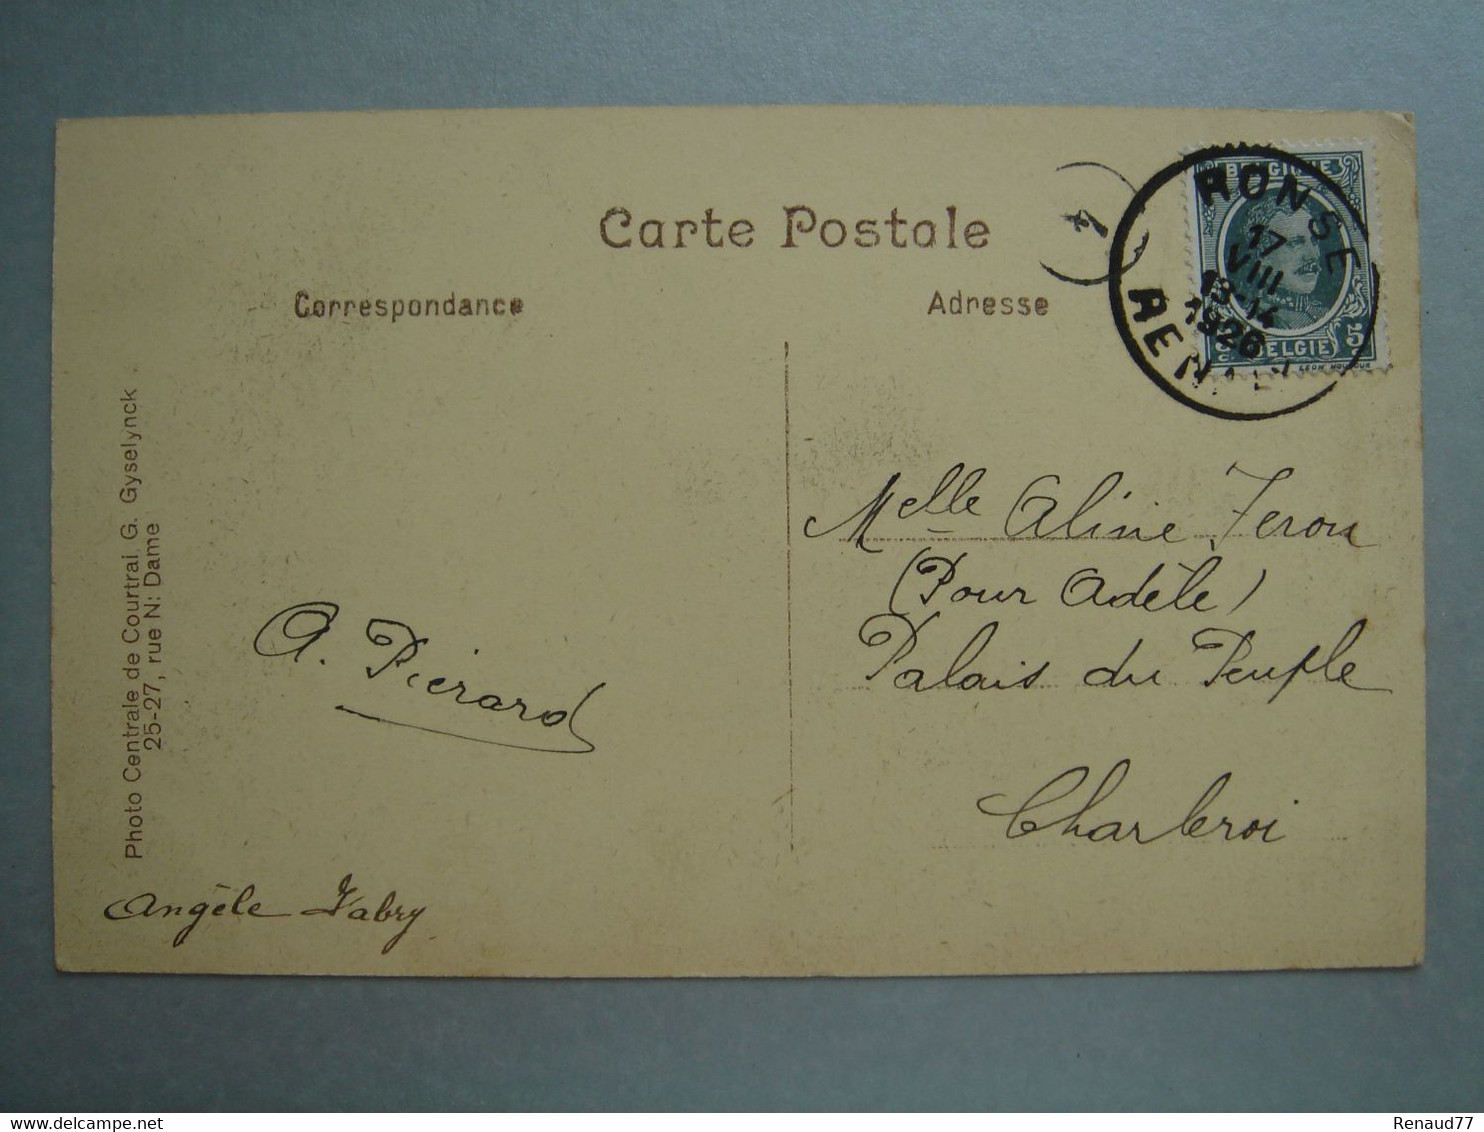 Carte Postale
Correspondance
Adresse
BELGIQUE
5
BELGIË
RONSE
17
VIII
13-14
1926
RENAIX
Photo Centrale de Courtrai, G. Gyselynck
25-27, rue N: Dame
Melle Aline Feron
(Pour Adèle)
Palais du Peuple
Charleroi
A. Piérard
Angèle Fabry
Renaud77
delcampe.net